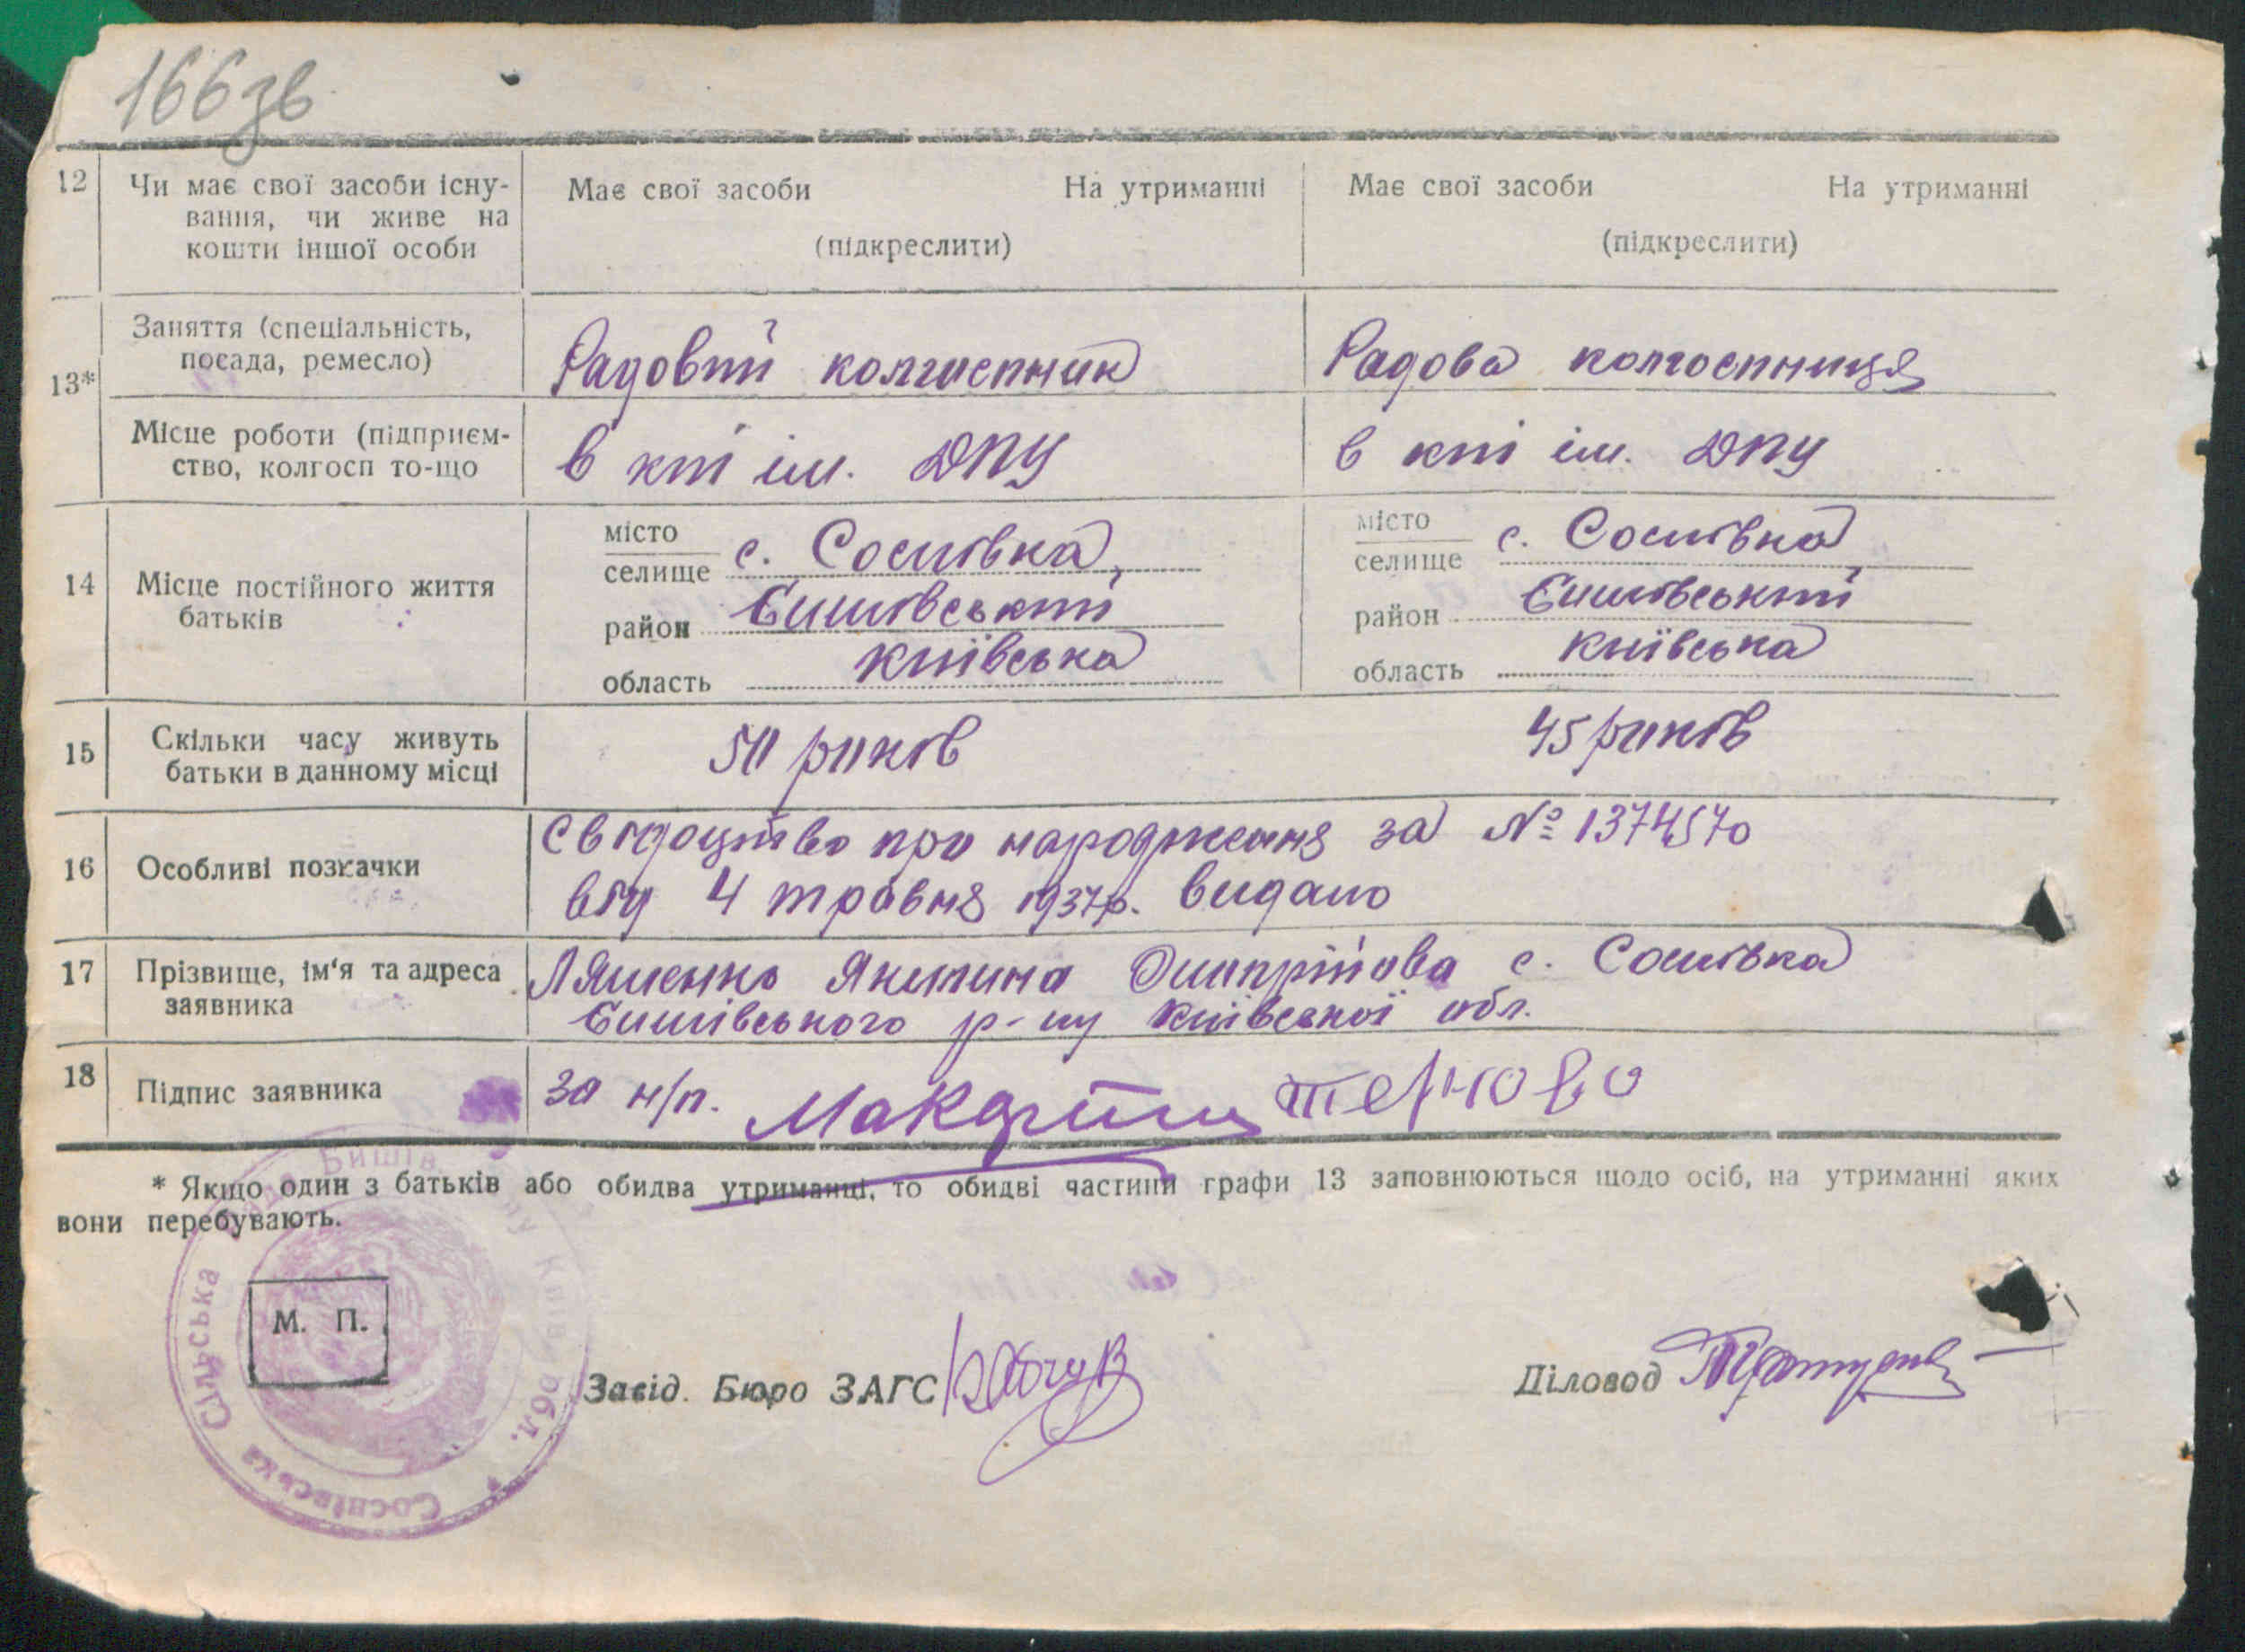 166зв
12 Чи має свої засоби існу- Має свої засоби На утриманні Має свої засоби На утриманні
вання, чи живе на
кошти іншої особи (підкреслити) (підкреслити)
13* Заняття (спеціальність,
посада, ремесло) Радовий колгоспник Радова колгоспниця
Місце роботи (підприєм-
ство, колгосп то-що в кті ім. ДПУ в кті ім. ДПУ
14 Місце постійного життя
батьків
місто
селище с. Соснівка,
район Бишівський
область Київська
місто
селище с. Соснівка,
район Бишівський
область Київська
15 Скільки часу живуть
батьки в данному місці 50 років 45 років
16 Особливі позначки Свідоцтво про народження за № 1374570
від 4 травня 1937р. видано
17 Прізвище, ім'я та адреса Ляшенко Якилина с. Соснівка
заявника Бишівського р-ну Київської обл.
18 Підпис заявника за н/п.
* Якщо один з батьків або обидва утриманці, то обидві частини графи 13 заповнюються щодо осіб, на утриманні яких
вони перебувають.
М. П.
Соснівська Сільська Бишів Київ обл.
Завід. Бюро ЗАГС
Діловод